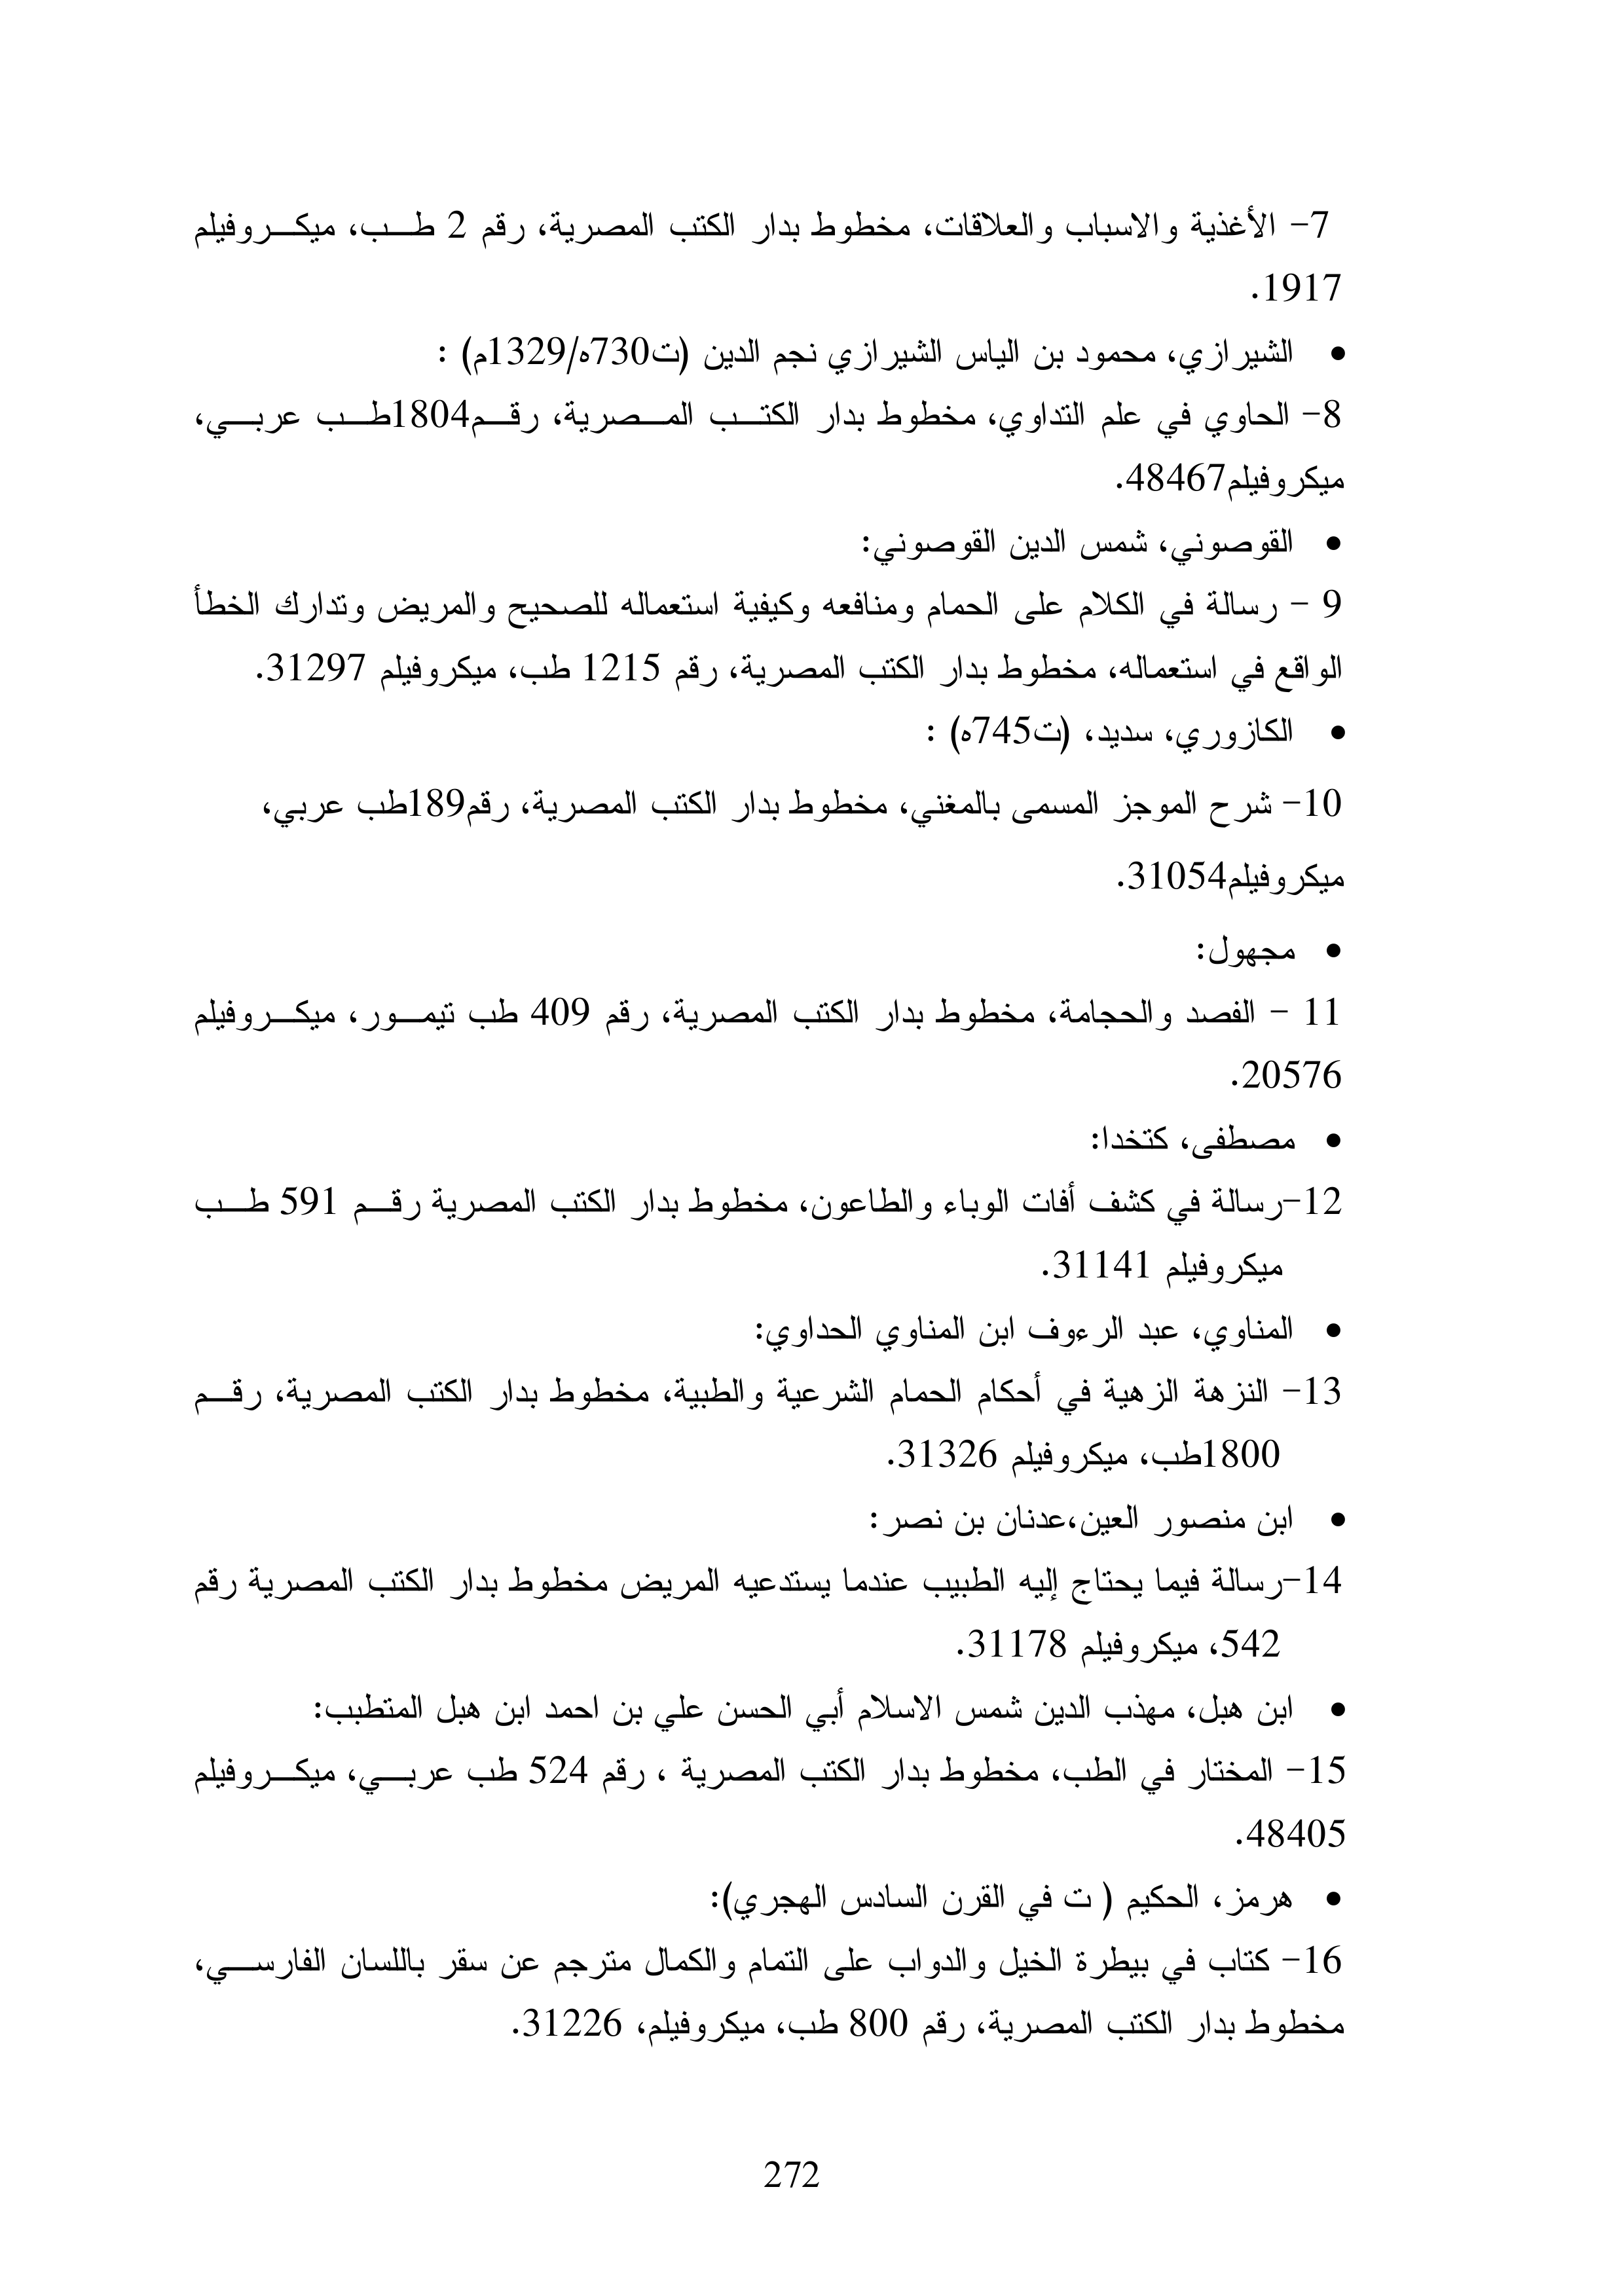 7- الأغذية والاسباب والعلاقات، مخطوط بدار الكتب المصرية، رقم 2 طب، ميكروفيلم
1917.
• الشيرازي، محمود بن الياس الشيرازي نجم الدين (ت730ه/1329م) :
8- الحاوي في علم التداوي، مخطوط بدار الكتب المصرية، رقم1804طب عربي،
ميكروفيلم48467.
• القوصوني، شمس الدين القوصوني:
9 - رسالة في الكلام على الحمام ومنافعه وكيفية استعماله للصحيح والمريض وتدارك الخطأ
الواقع في استعماله، مخطوط بدار الكتب المصرية، رقم 1215 طب، ميكروفيلم 31297.
• الكازوري، سديد، (ت745ه) :
10- شرح الموجز المسمى بالمغني، مخطوط بدار الكتب المصرية، رقم189طب عربي،
ميكروفيلم31054.
• مجهول:
11 - الفصد والحجامة، مخطوط بدار الكتب المصرية، رقم 409 طب تيمور، ميكروفيلم
20576.
• مصطفى، كتخدا:
12-رسالة في كشف أفات الوباء والطاعون، مخطوط بدار الكتب المصرية رقم 591 طب
ميكروفيلم 31141.
• المناوي، عبد الرءوف ابن المناوي الحداوي:
13- النزهة الزهية في أحكام الحمام الشرعية والطبية، مخطوط بدار الكتب المصرية، رقم
1800طب، ميكروفيلم 31326.
• ابن منصور العين،عدنان بن نصر:
14-رسالة فيما يحتاج إليه الطبيب عندما يستدعيه المريض مخطوط بدار الكتب المصرية رقم
542، ميكروفيلم 31178.
• ابن هبل، مهذب الدين شمس الاسلام أبي الحسن علي بن احمد ابن هبل المتطبب:
15- المختار في الطب، مخطوط بدار الكتب المصرية ، رقم 524 طب عربي، ميكروفيلم
48405.
• هرمز، الحكيم ( ت في القرن السادس الهجري):
16- كتاب في بيطرة الخيل والدواب على التمام والكمال مترجم عن سقر باللسان الفارسي،
مخطوط بدار الكتب المصرية، رقم 800 طب، ميكروفيلم، 31226.
272